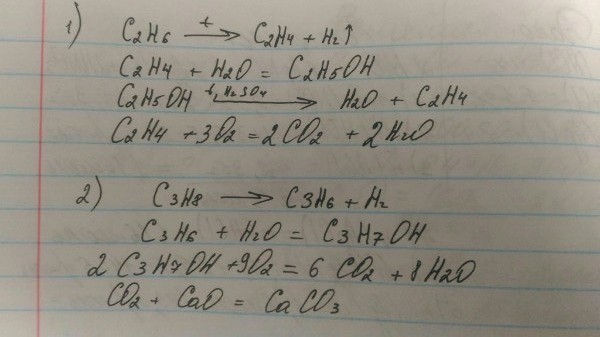 1) C2H6 —t→ C2H4 + H2↑
C2H4 + H2O = C2H5OH
C2H5OH —t, H2SO4→ H2O + C2H4
C2H4 + 3O2 = 2CO2 + 2H2O
2) C3H8 → C3H6 + H2
C3H6 + H2O = C3H7OH
2 C3H7OH + 9O2 = 6 CO2 + 8H2O
CO2 + CaO = CaCO3